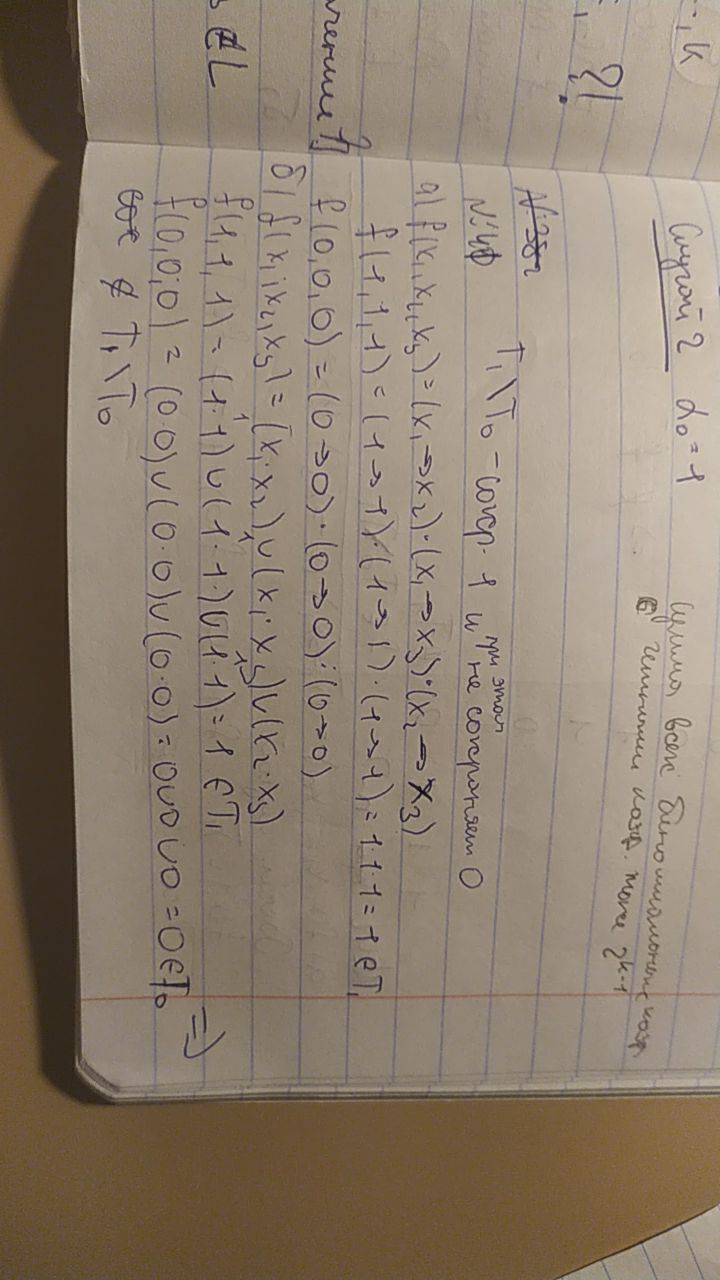 Случай 2 α₀ = 1
Сумма всех биномиальных коэф
с четными коэф. тоже 2^{k-1}
N:38
N:40 T₁\T₀ - сохр. 1 и при этом не сохраняет 0
а) f(x₁,x₂,x₃)=(x₁→x₂)·(x₁→x₃)·(x₂→x₃)
f(1,1,1)=(1→1)·(1→1)·(1→1)=1·1·1=1∈T₁
f(0,0,0)=(0→0)·(0→0)·(0→0)
б) f(x₁,x₂,x₃)=(x₁·x₂)∪(x₁·x₃)∪(x₂·x₃)
f(1,1,1)=(1·1)∪(1·1)∪(1·1)=1∈T₁
f(0,0,0)=(0·0)∪(0·0)∪(0·0)=0∪0∪0=0∈T₀ ⇒
∉ T₁\T₀
.., k
?!
∉L